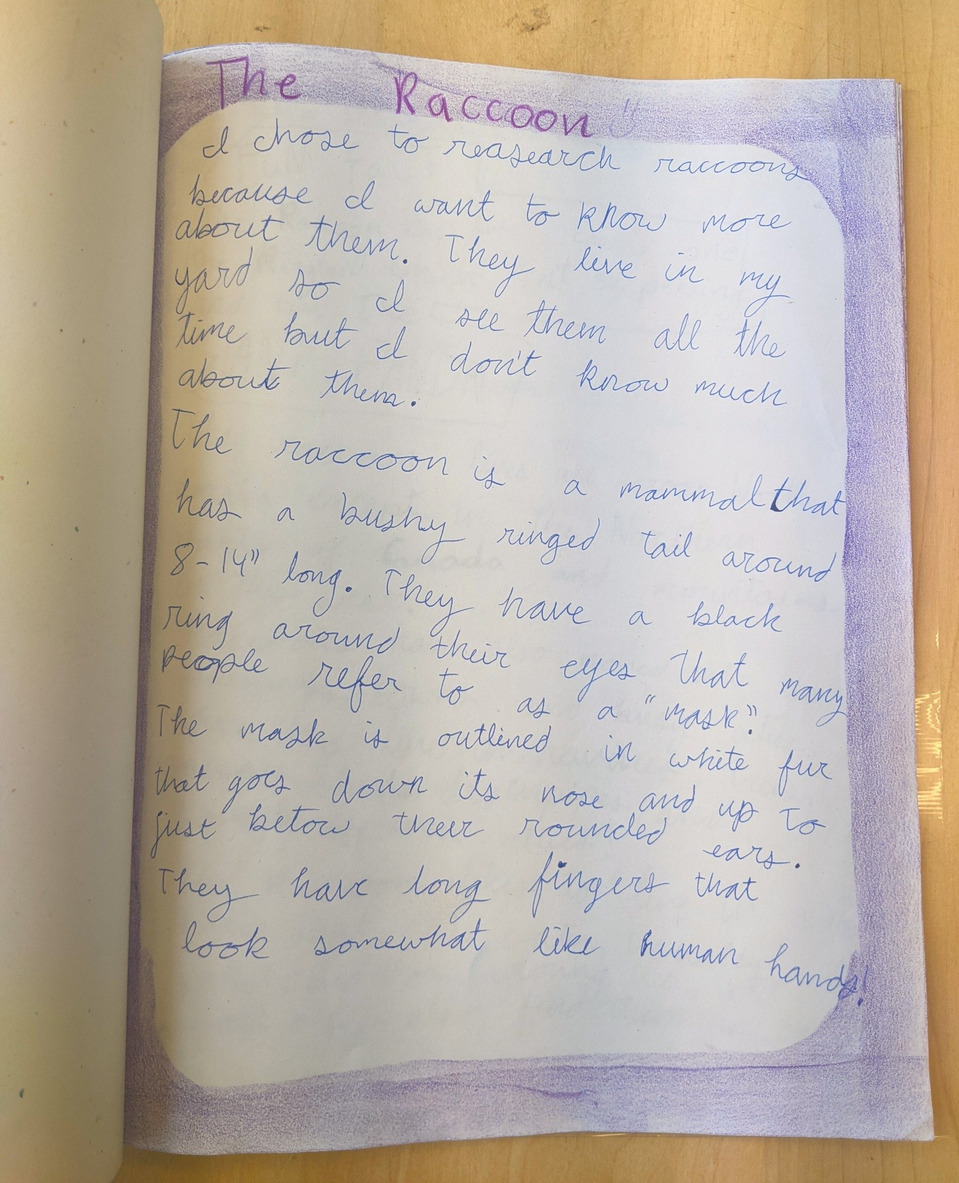 The Raccoon
I chose to reasearch raccoons
because I want to know more
about them. They live in my
yard so I see them all the
time but I don't know much
about them.
The raccoon is a mammal that
has a bushy ringed tail around
8-14" long. They have a black
ring around their eyes that many
people refer to as a "mask".
The mask is outlined in white fur
that goes down its nose and up to
just below their rounded ears.
They have long fingers that
look somewhat like human hands!